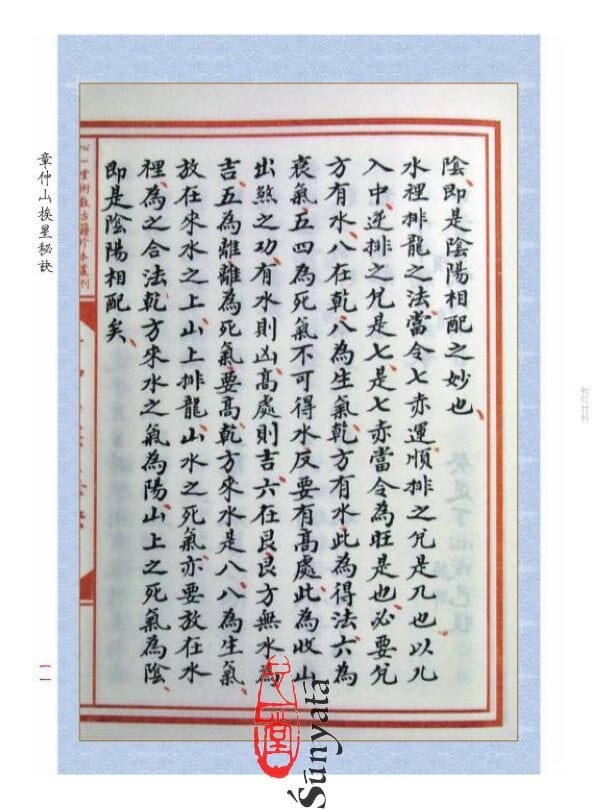 陰即是陰陽相配之妙也
水裡排龍之法當令七赤運順排之兌是九也以九
入中逆排之兌是七是七赤當令為旺是也必要兌
方有水八在乾八為生氣乾方有水此為得法六為
衰氣五四為死氣不可得水反要有高處此為收山
出煞之功有水則凶高處則吉六在艮艮方無水為
吉五為離離為死氣要高乾方來水是八八為生氣
放在來水之上山上排龍山水之死氣亦要放在水
裡為之合法乾方來水之氣為陽山上之死氣為陰
即是陰陽相配矣
心一堂術數古籍珍本叢刊
章仲山挨星秘訣
一一
心一堂
Śūnyatā